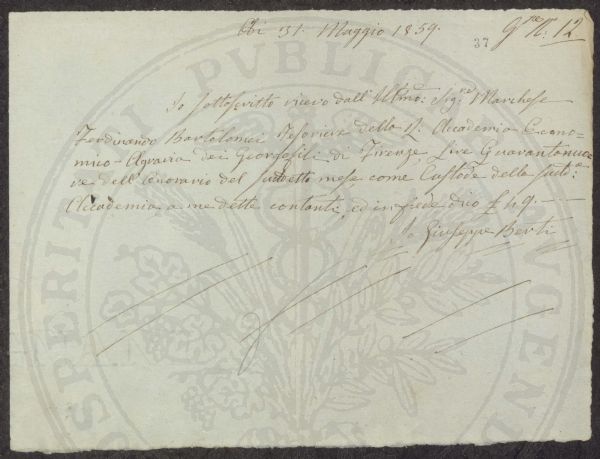 Adi 31. Maggio 1859.
37 Gre. N: 12
Io sottoscritto ricevo dall'Illmo: Sigre. Marchese
Ferdinando Bartolomei Tesoriere della R: Accademia Econo-
mico-Agraria dei Georgofili di Firenze Lire Quarantanove
ve dell'onorario del suddetto mese come Custode della sudd:
Accademia a me dette contanti, ed in fede dico £ 49. —
Giuseppe Berti
PROSPERITATI PUBLICAE AUGENDAE